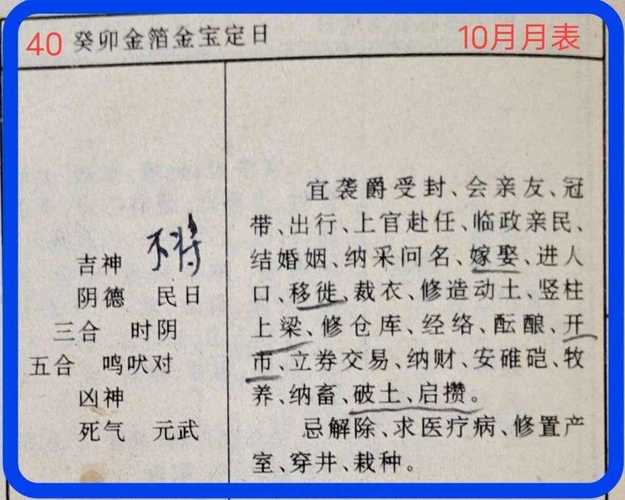 40 癸卯金箔金宝定日
10月月表
吉神 不将
阴德 民日
三合 时阴
五合 鸣吠对
凶神
死气 元武
宜袭爵受封、会亲友、冠
带、出行、上官赴任、临政亲民、
结婚姻、纳采问名、嫁娶、进人
口、移徙、裁衣、修造动土、竖柱
上梁、修仓库、经络、酝酿、开
市、立券交易、纳财、安碓硙、牧
养、纳畜、破土、启攒。
忌解除、求医疗病、修置产
室、穿井、栽种。